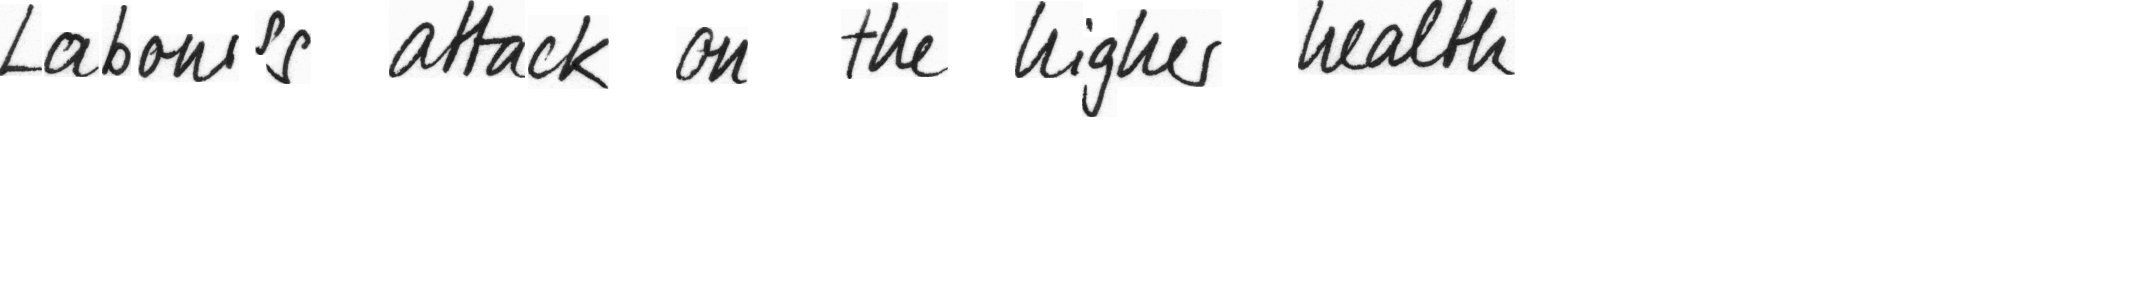 Labour's attack on the higher health